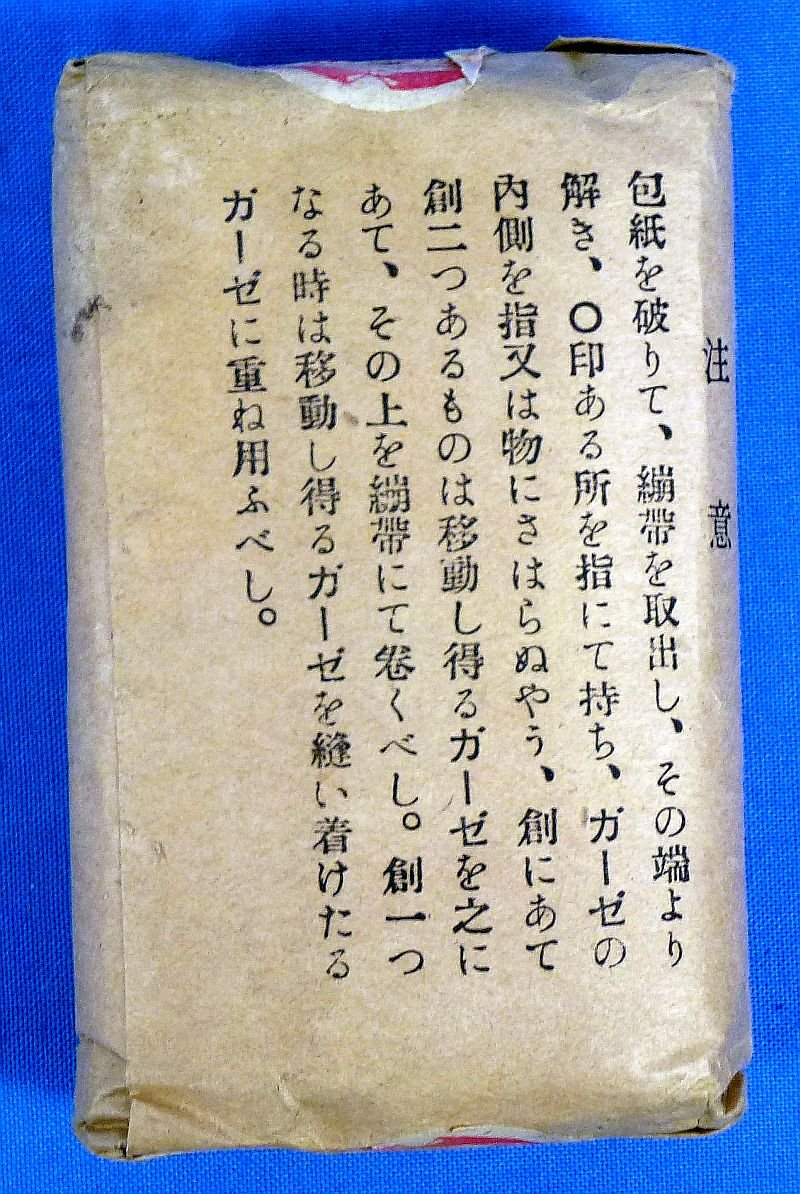 注意
包紙を破りて、繃帶を取出し、その端より
解き、〇印ある所を指にて持ち、ガーゼの
内側を指又は物にさはらぬやう、創にあて
創二つあるものは移動し得るガーゼを之に
あて、その上を繃帶にて卷くべし。創一つ
なる時は移動し得るガーゼを縫い着けたる
ガーゼに重ね用ふべし。